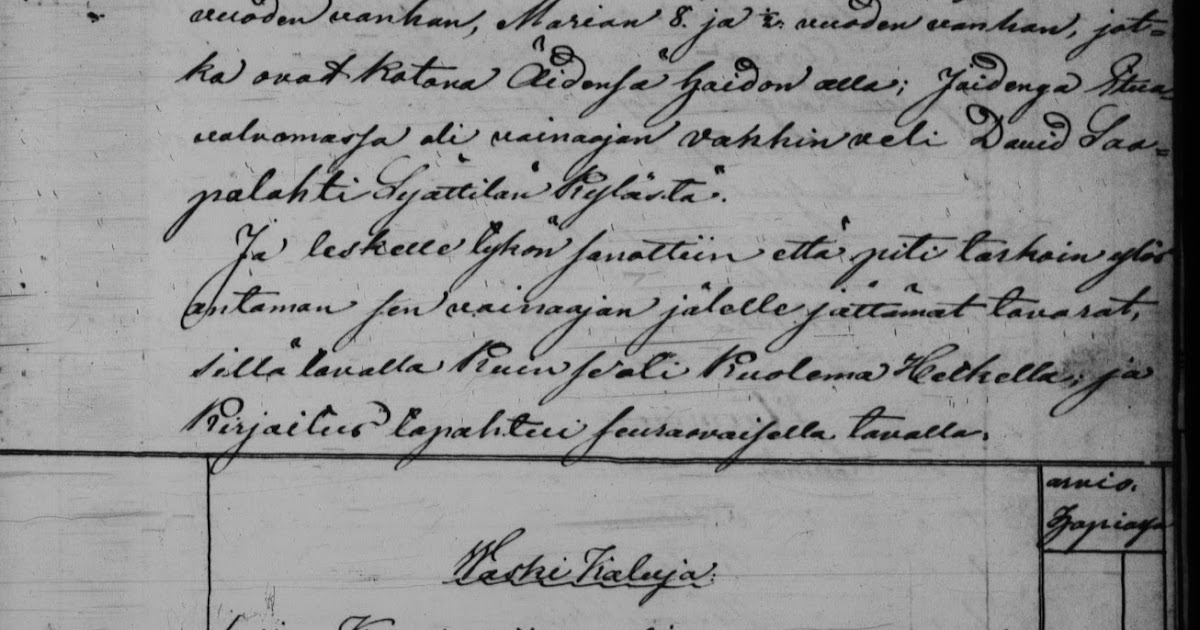 vuoden vanhan, Marian 8. ja ½. vuoden vanhan, jot-
ka ovat kotona Äidensä hoidon alla; Joidenga Etua-
valvomassa oli vainaajan vanhin veli David Saa-
palahti Syättilän Kylästä.
Ja leskelle tykön sanottiin että piti tarkoin ylös
antaman sen vainaajan jälelle jättämät tavarat,
sillä tavalla kuin se oli Kuolema Hetkellä; ja
Kirjaitus tapahtui seuraavaisella tavalla.
arvio.
Kopioya
Waski Kaluja.